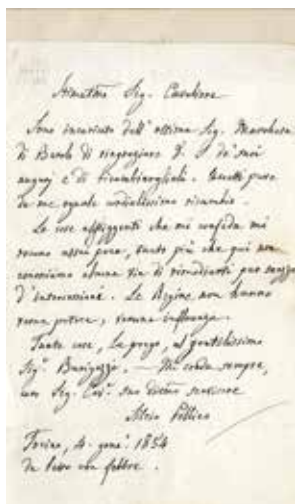 Stimatmo Sig. Cavaliere
Sono incaricato dall' ottima Sig. Marchesa
di Barolo di ringraziare V. S. de' suoi
augurj e di ricambiarglieli. Accetti pure
da me eguale cordialissimo ricambio.
Le cose affliggenti che mi confida mi
recano assai pena, tanto più che qui non
conosciamo alcuna via di rimediarvi per mezzo
d'intercessioni. Le Regine non hanno
verun potere, veruna influenza.
Tante cose, La prego, al gentilissimo
Sigr. — Mi creda sempre,
caro Sig. Cavre. suo devmo servitore
Silvio Pellico
Torino, 4. genn. 1854
Da letto con febbre.